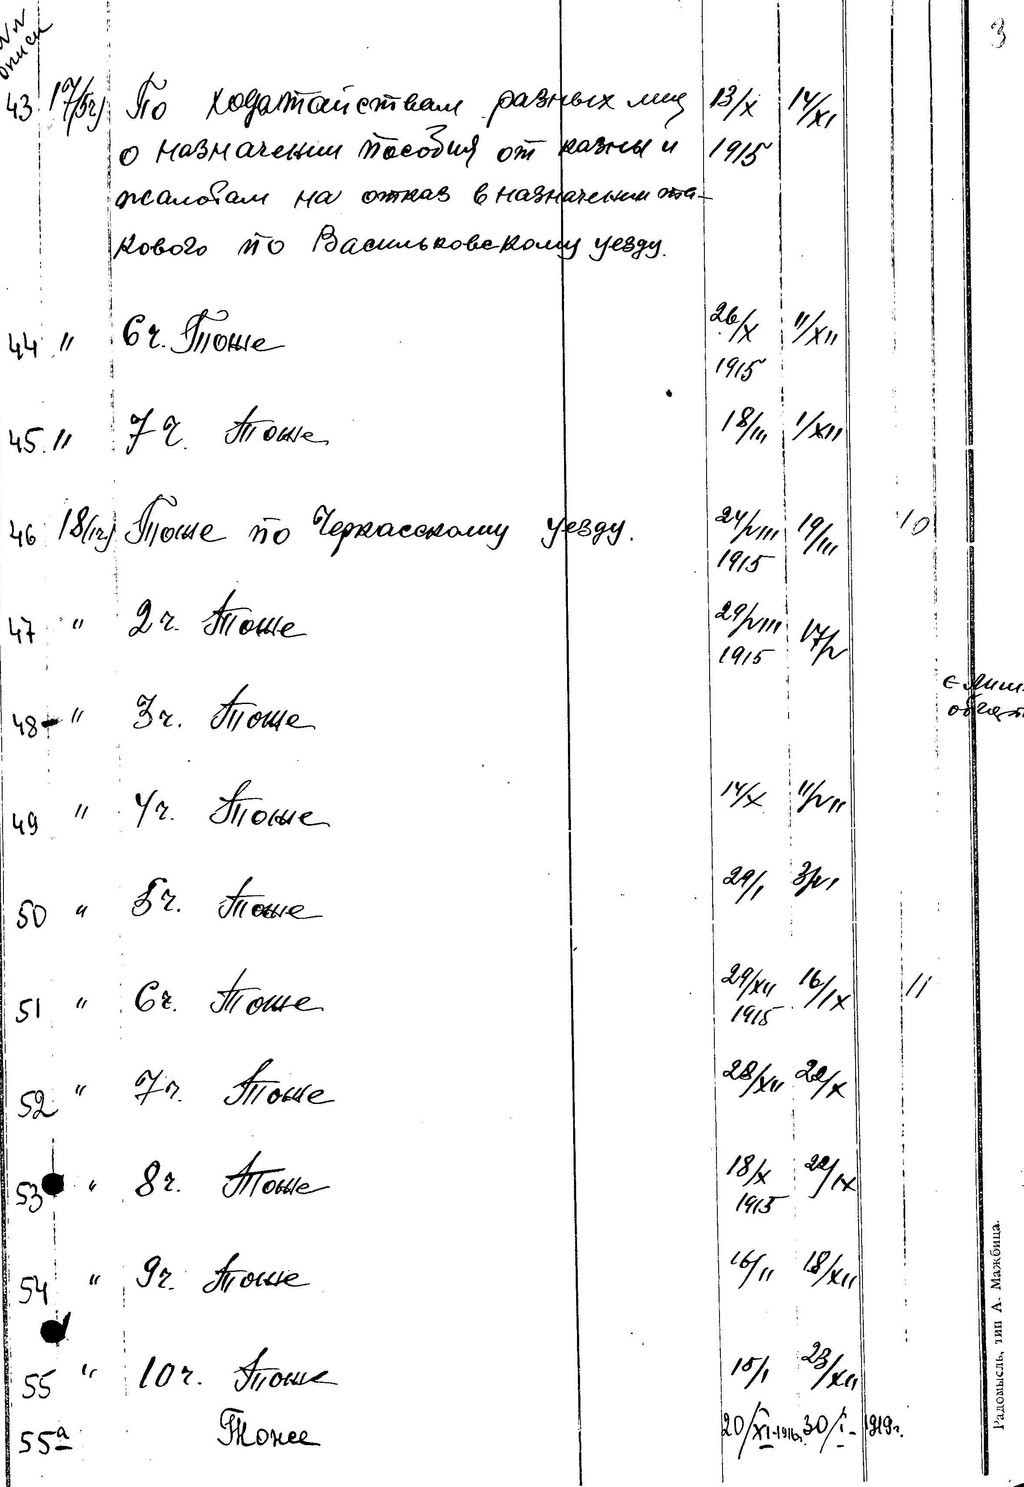 3
NN
описи
43 17(5ч) По ходатайствам разных лиц 13/X 14/XI
о назначении пособия от казны и 1915
жалобам на отказ в назначении та-
кового по Васильковскому уезду.
44 " 6ч. Тоже 26/X 11/XII
1915
45. " 7ч. Тоже 18/III 1/XII
46 18(1ч) Тоже по Черкасскому уезду. 24/VIII 19/III 10
1915
47 " 2ч. Тоже 29/VIII 17/V
1915
48 " 3ч. Тоже
49 " 4ч. Тоже 14/X 11/VII
50 " 5ч. Тоже 29/I 3/VI
51 " 6ч. Тоже 29/XII 16/IX 11
1915
52 " 7ч. Тоже 28/XII 22/X
53 " 8ч. Тоже 18/X 22/IX
1915
54 " 9ч. Тоже 16/II 18/XII
55 " 10ч. Тоже 15/I 23/XII
55а Тоже 20/XI-1916г. 30/I-1919г.
Радомысль, тип А. Мажбица.